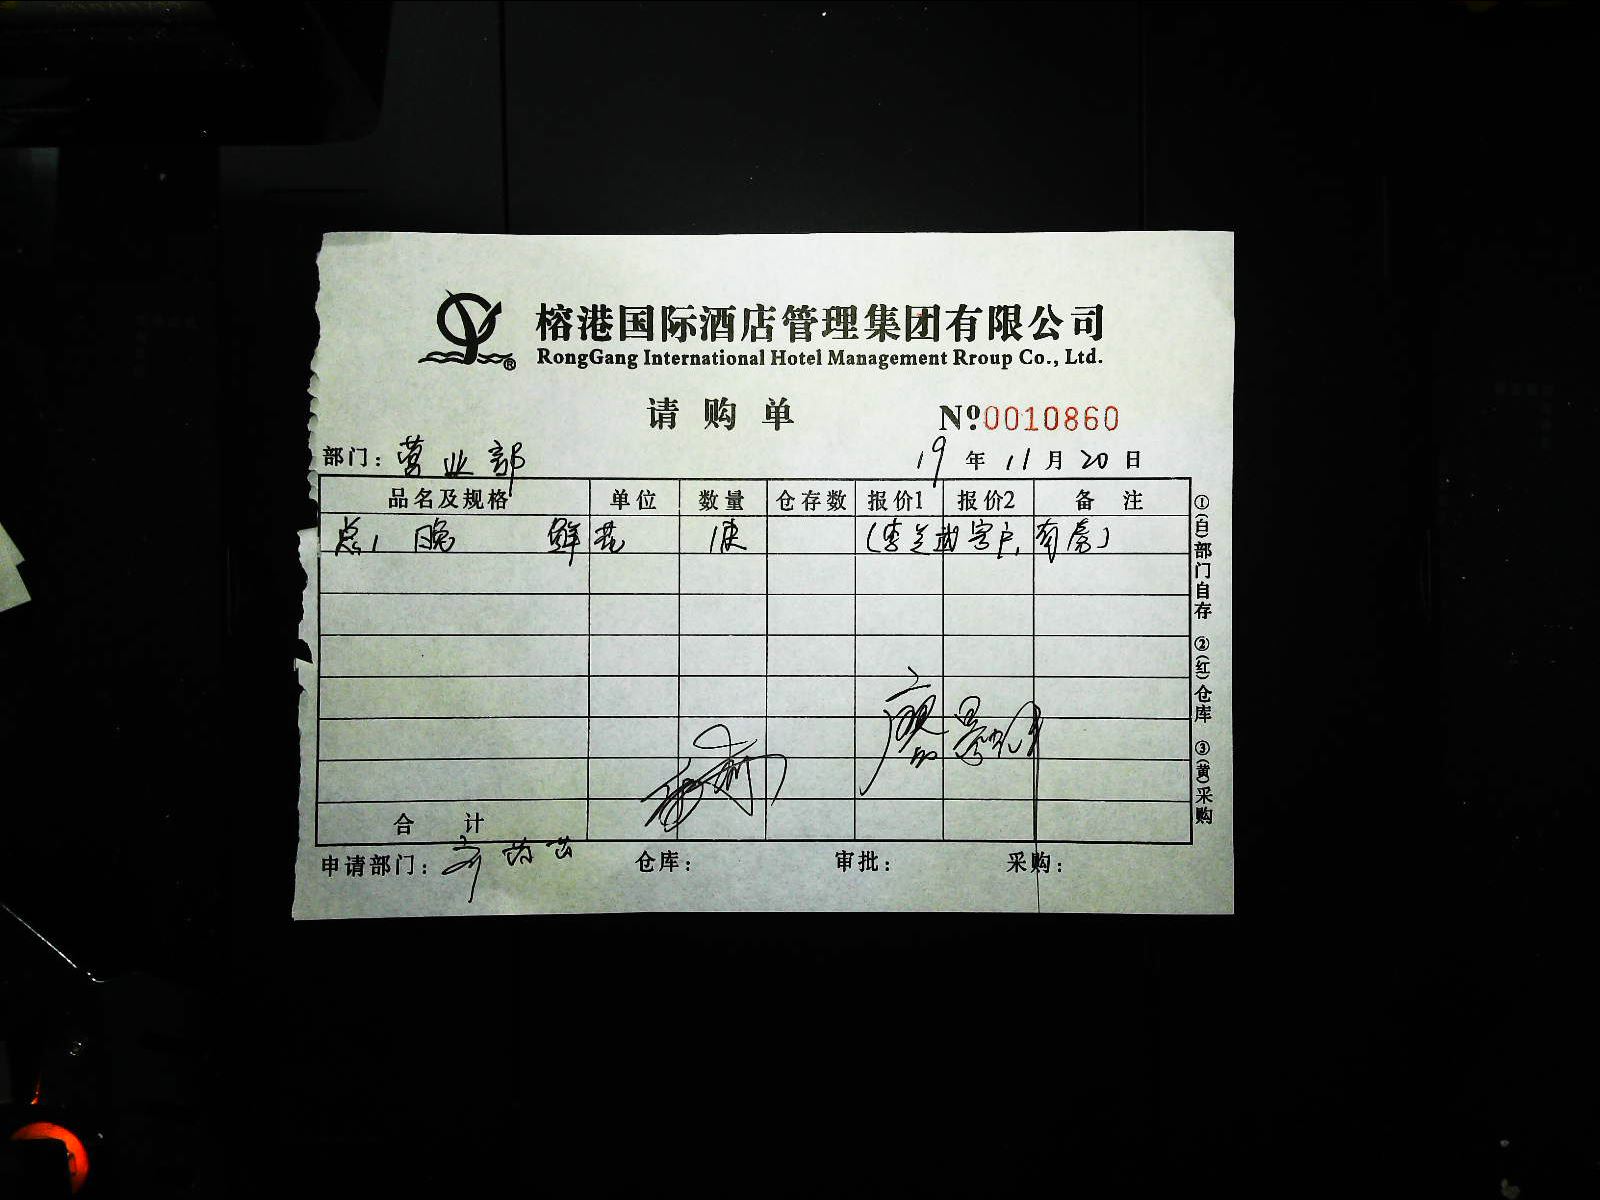 榕港国际酒店管理集团有限公司
RongGang International Hotel Management Rroup Co., Ltd.
®
请购单
Nº 0010860
部门: 营业部
19年11月20日
品名及规格 单位 数量 仓存数 报价1 报价2 备注
晚 鲜花 客户
合计
申请部门: 仓库: 审批: 采购:
①(白)部门自存 ②(红)仓库 ③(黄)采购